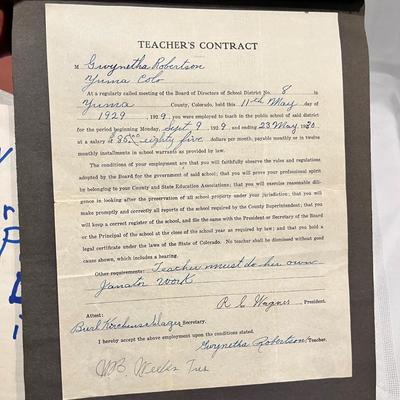 TEACHER'S CONTRACT
M Gwynetha Robertson
Yuma Colo
At a regularly called meeting of the Board of Directors of School District No. 8 in
Yuma County, Colorado, held this 11th May day of
1929, 1929, you were employed to teach in the public school of said district
for the period beginning Monday Sept 9 1929, and ending 23 May 1930.
at a salary of eighty five dollars per month, payable monthly or in twelve
monthly installments in school warrants as provided by law.
The conditions of your employment are that you will faithfully observe the rules and regulations
adopted by the Board for the government of said school; that you will prove your professional spirit
by belonging to your County and State Education Associations; that you will exercise reasonable dili-
gence in looking after the preservation of all school property under your jurisdiction; that you will
make promptly and correctly all reports of the school required by the County Superintendent; that you
will keep a correct register of the school, and file the same with the President or Secretary of the Board
or the Principal of the school at the close of the school year as required by law; and that you hold a
legal certificate under the laws of the State of Colorado. No teacher shall be dismissed without good
cause shown, which includes a hearing.
Other requirements: Teacher must do her own
Janator work
R. C. Wagner, President.
Attest:
Burl Secretary.
I hereby accept the above employment upon the conditions stated.
Gwynetha Robertson, Teacher.